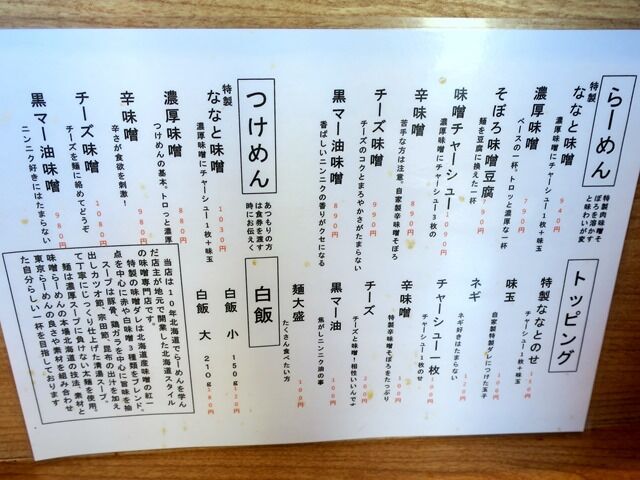 らーめん
特製肉味噌そ
ぼろを溶かす
と味わいが変
特製
なな と味噌
濃厚味噌にチャーシュー1枚+味玉
940円
濃厚味噌
ベースの一杯、トロッと濃厚な一杯
790円
そぼろ味噌豆腐
麺を豆腐に換えた一杯
790円
味噌チャーシュー
濃厚味噌にチャーシュー3枚の
1090円
辛味噌
苦手な方は注意。自家製辛味噌そぼろ
890円
チーズ味噌
チーズのコクとまろやかさがたまらない
990円
黒マー油味噌
香ばしいニンニクの香りがクセになる
890円
つけめん
あつもりの方
は食券を渡す
時にお伝えく
特製
なな と味噌
濃厚味噌にチャーシュー1枚+味玉
1030円
濃厚味噌
つけめんの基本。トロっと濃厚
880円
辛味噌
辛さが食欲を刺激！
980円
チーズ味噌
チーズを麺に絡めてどうぞ
1080円
黒マー油味噌
ニンニク好きにはたまらない
980円
トッピング
特製ななとのせ
チャーシュー1枚+味玉
味玉
自家製特製ダレにつけた玉子
ネギ
ネギ好きはたまらない
チャーシュー一枚
チャーシュー1枚のせ
辛味噌
特製辛味噌そぼろをたっぷり
チーズ
チーズと味噌！相性いいんです
黒マー油
焦がしニンニク油の事
100円
麺大盛
たくさん食べたい方
100円
白飯
白飯 小 150g
白飯 大 210g
当店は10年北海道でらーめんを学ん
だ店主が地元で開業した北海道スタイル
の味噌専門店です。
特製の味噌ダレは北海道産味噌の紅一
点を中心に赤や白味噌3種類をブレンド。
スープは豚骨、鶏ガラを中心に旨味を抽
出しカツオ節、宗田節、昆布の出汁を加え
て丁寧にじっくり仕上げた濁湯スープ。
麺は濃厚スープに負けない太麺を使用。
味噌らーめんの本場北海道の技法、素材と
東京らーめんの良さや素材を組み合わせ
た自分らしい一杯を目指しております